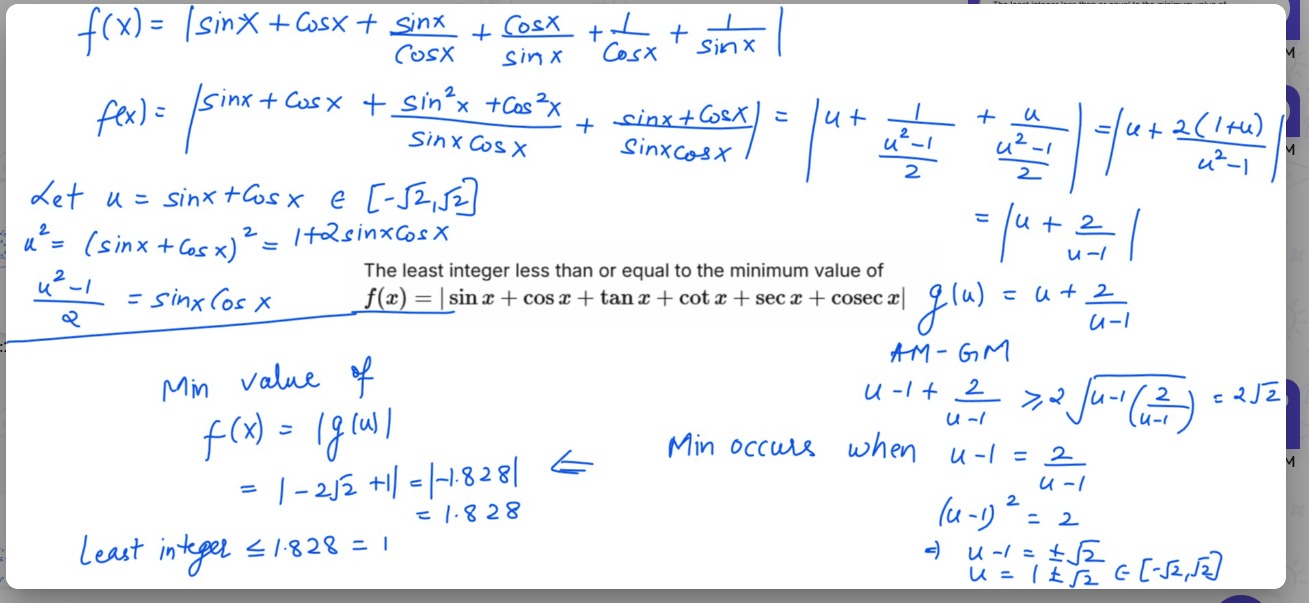 f(x) = |sinx + Cosx + sinx/Cosx + Cosx/sinx + 1/Cosx + 1/sinx|
f(x) = |sinx + Cosx + (sin²x + Cos²x)/(sinx Cosx) + (sinx + Cosx)/(sinxcosx)| = |u + 1/((u²-1)/2) + u/((u²-1)/2)| = |u + 2(1+u)/(u²-1)|
= |u + 2/(u-1)|
Let u = sinx + Cosx ∈ [-√2,√2]
u² = (sinx + Cosx)² = 1+2sinxCosx
(u²-1)/2 = sinx Cosx
The least integer less than or equal to the minimum value of
f(x) = | sin x + cos x + tan x + cot x + sec x + cosec x|
g(u) = u + 2/(u-1)
AM-GM
u-1 + 2/(u-1) ⩾ 2√(u-1(2/(u-1))) = 2√2
Min occurs when u-1 = 2/(u-1)
(u-1)² = 2
⇒ u-1 = ±√2
u = 1 ± √2 ∈ [-√2,√2]
Min value of
f(x) = |g(u)|
= |-2√2 +1| = |-1.828| ⇐
= 1.828
Least integer ≤ 1.828 = 1